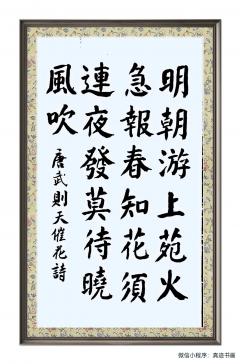 明朝游上苑火
急報春知花須
連夜發莫待曉
風吹
唐武則天催花詩
微信小程序：真迹书画